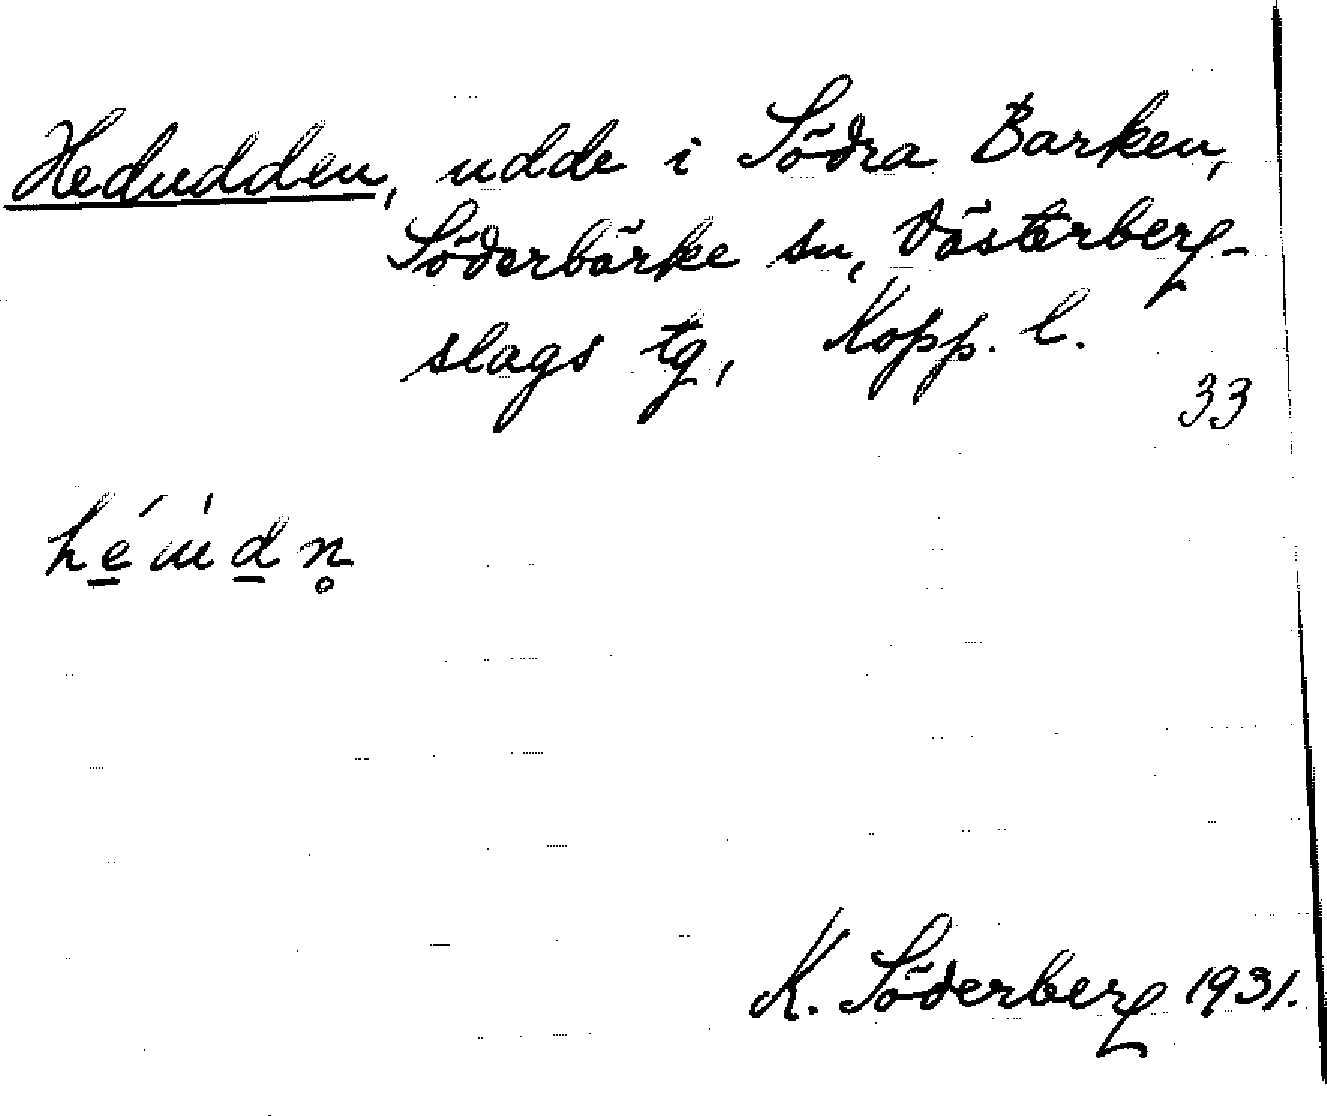 Hedudden, udde i Södra Barken,
Söderbärke sn, Västerberg-
slags tg, Kopp. l.
33
K. Söderberg 1931.